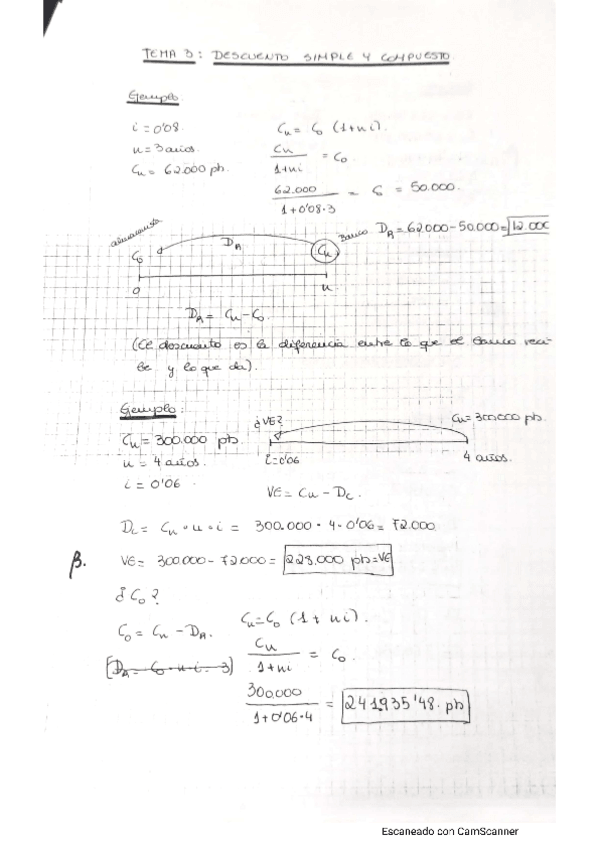 TEMA 3: DESCUENTO SIMPLE Y COMPUESTO
Ejemplo
i = 0'08.
n = 3 años.
Cn = 62.000 ptas.
Cn = C0 (1+ni).
Cn / 1+ni = C0
62.000 / 1+0'08·3 = C0 = 50.000.
Banco DA = 62.000-50.000 = 12.000
DA
C0
Cn
0
n
DA = Cn - C0.
(El descuento es la diferencia entre lo que el banco reci-
be y lo que da).
Ejemplo:
Cn = 300.000 ptas.
n = 4 años.
i = 0'06
¿VE?
Cn = 300.000 ptas.
i = 0'06
4 años.
VE = Cn - Dc.
Dc = Cn · n · i = 300.000 · 4 · 0'06 = 72.000
VE = 300.000 - 72.000 = 228.000 ptas = VE
¿C0?
C0 = Cn - DA.
Cn = C0 (1 + ni).
Cn / 1+ni = C0.
300.000 / 1+0'06·4 = 241.935'48. ptas
Escaneado con CamScanner